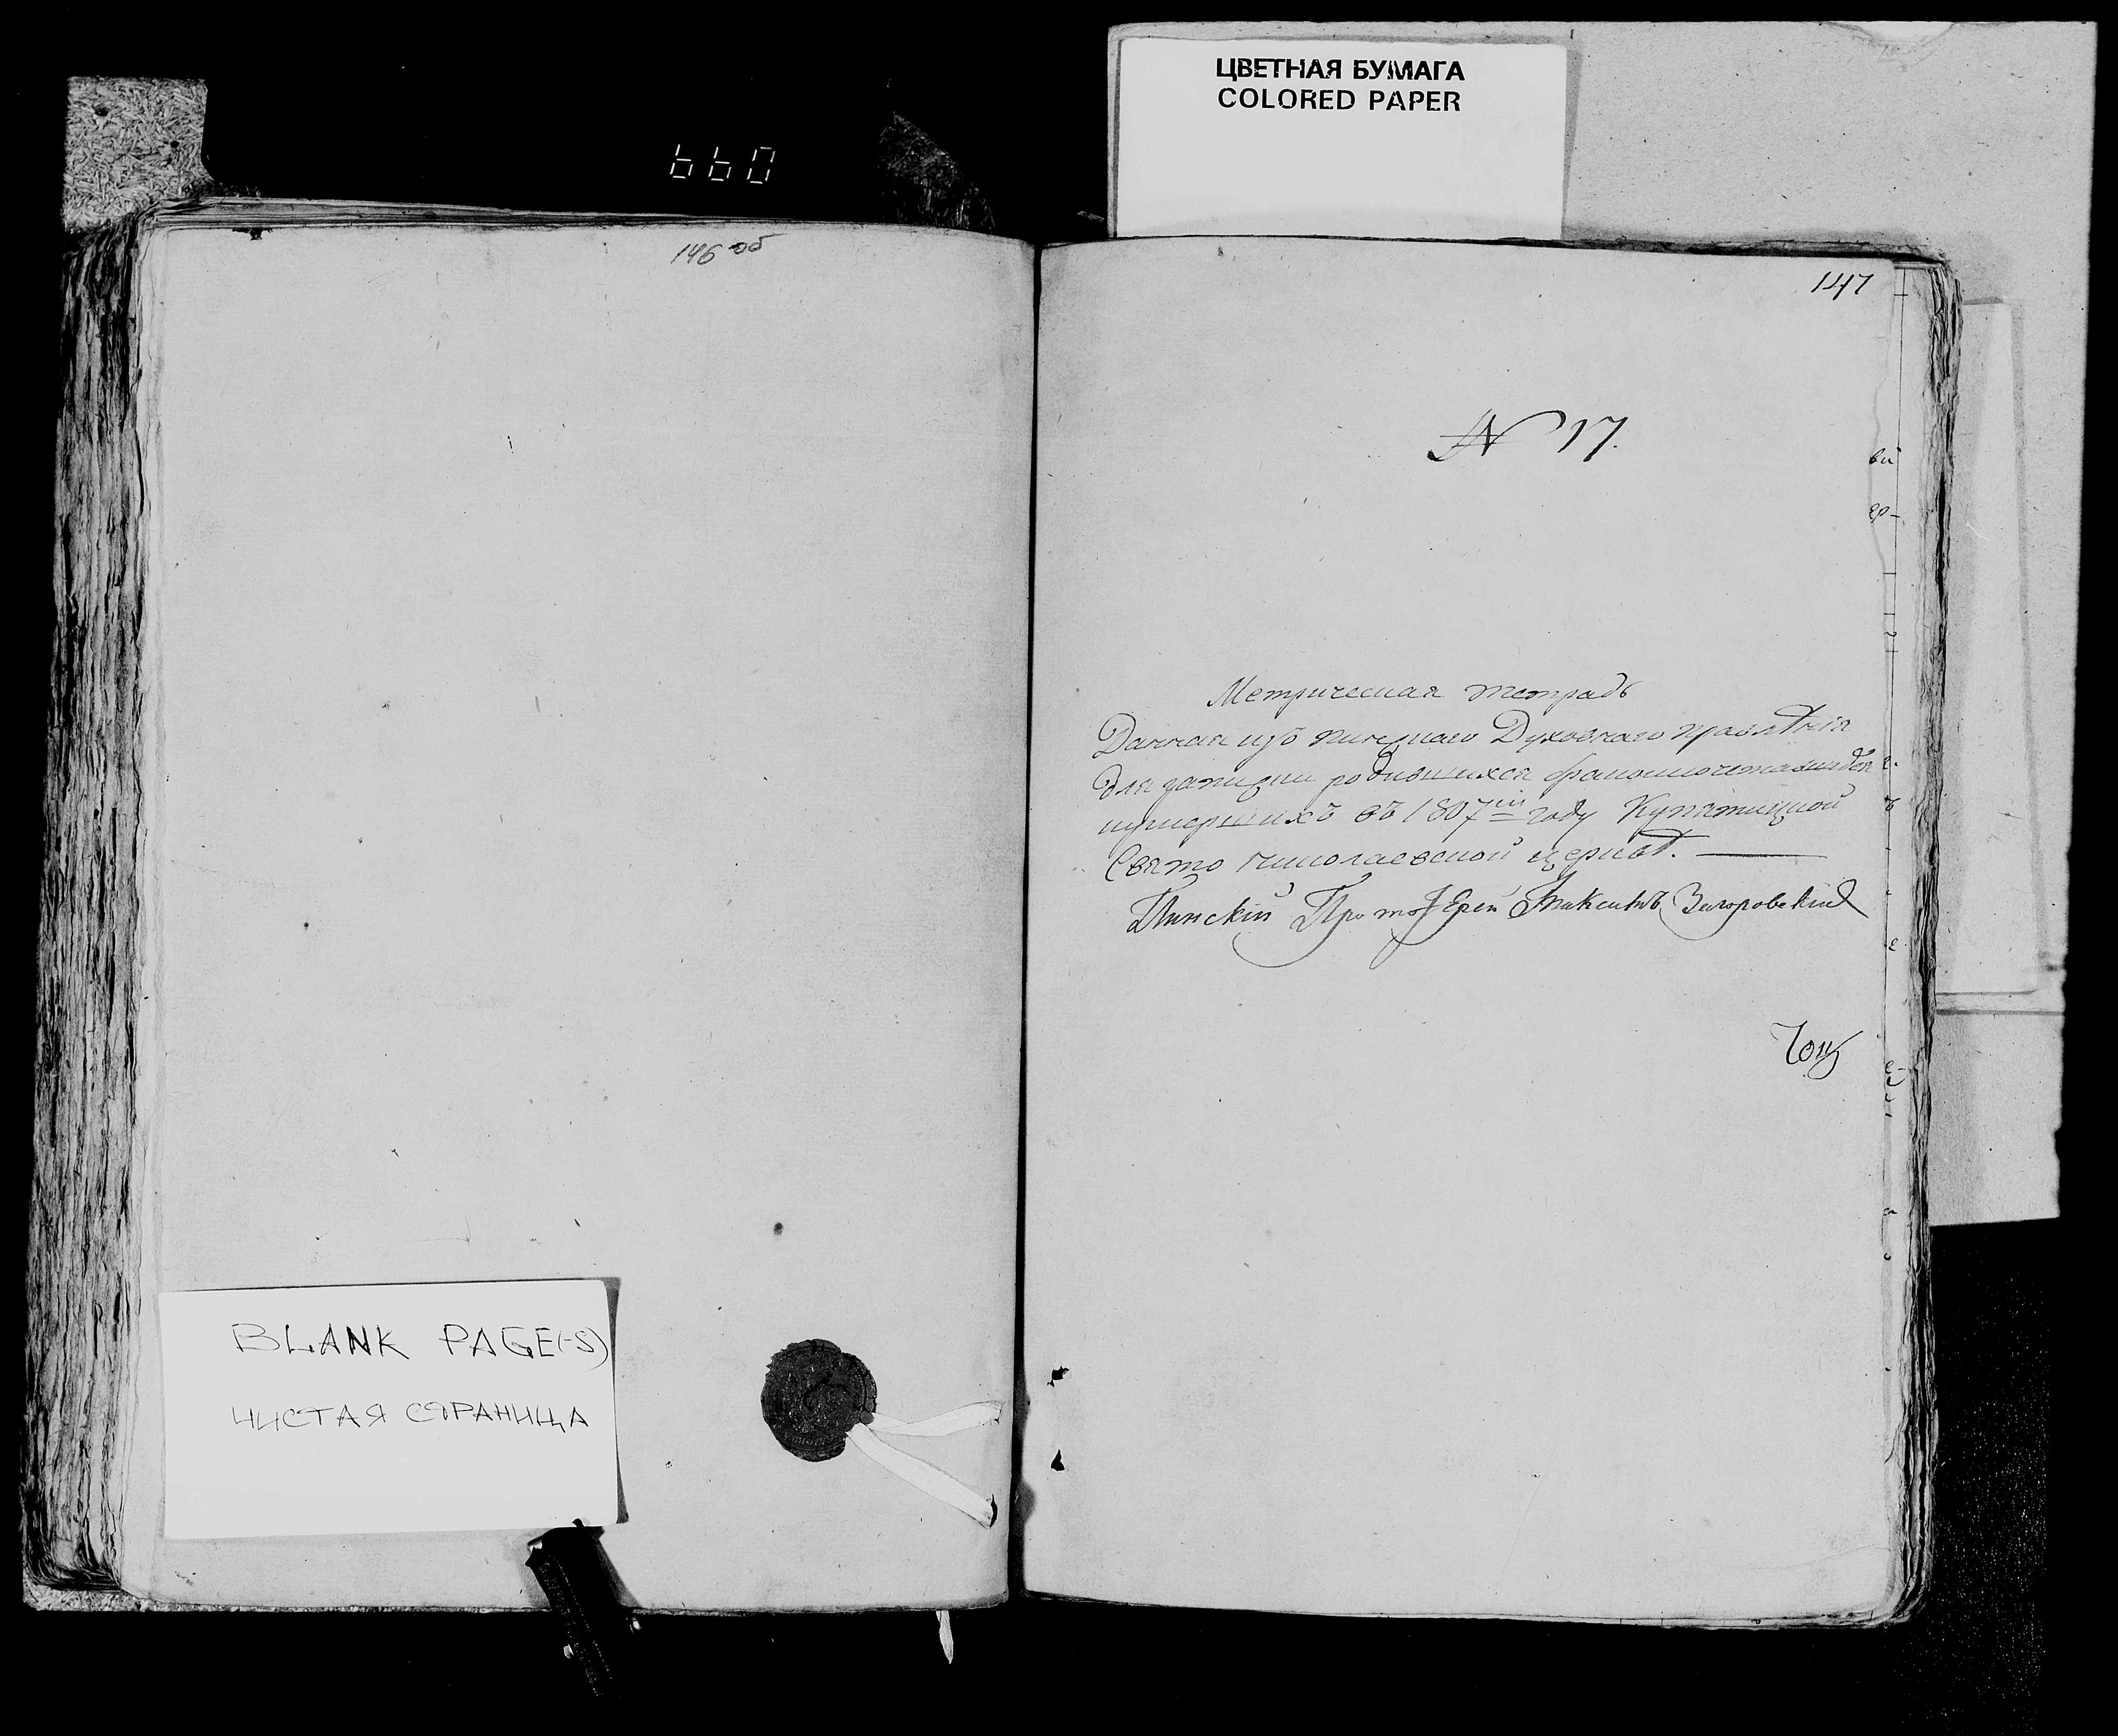 ЦВЕТНАЯ БУМАГА
COLORED PAPER
146 об
147
№ 17.
Метрическая тетрадь
Данная изъ пинскаго Духовнаго правлѣнія
для записки родившихся бракосочетавшихся
иумершихъ въ 1807мъ году Купятицкой
Свято николаевской церквѣ.
Пинскій ПротоІерей Максимъ
BLANK PAGE(-S)
ЧИСТАЯ СТРАНИЦА